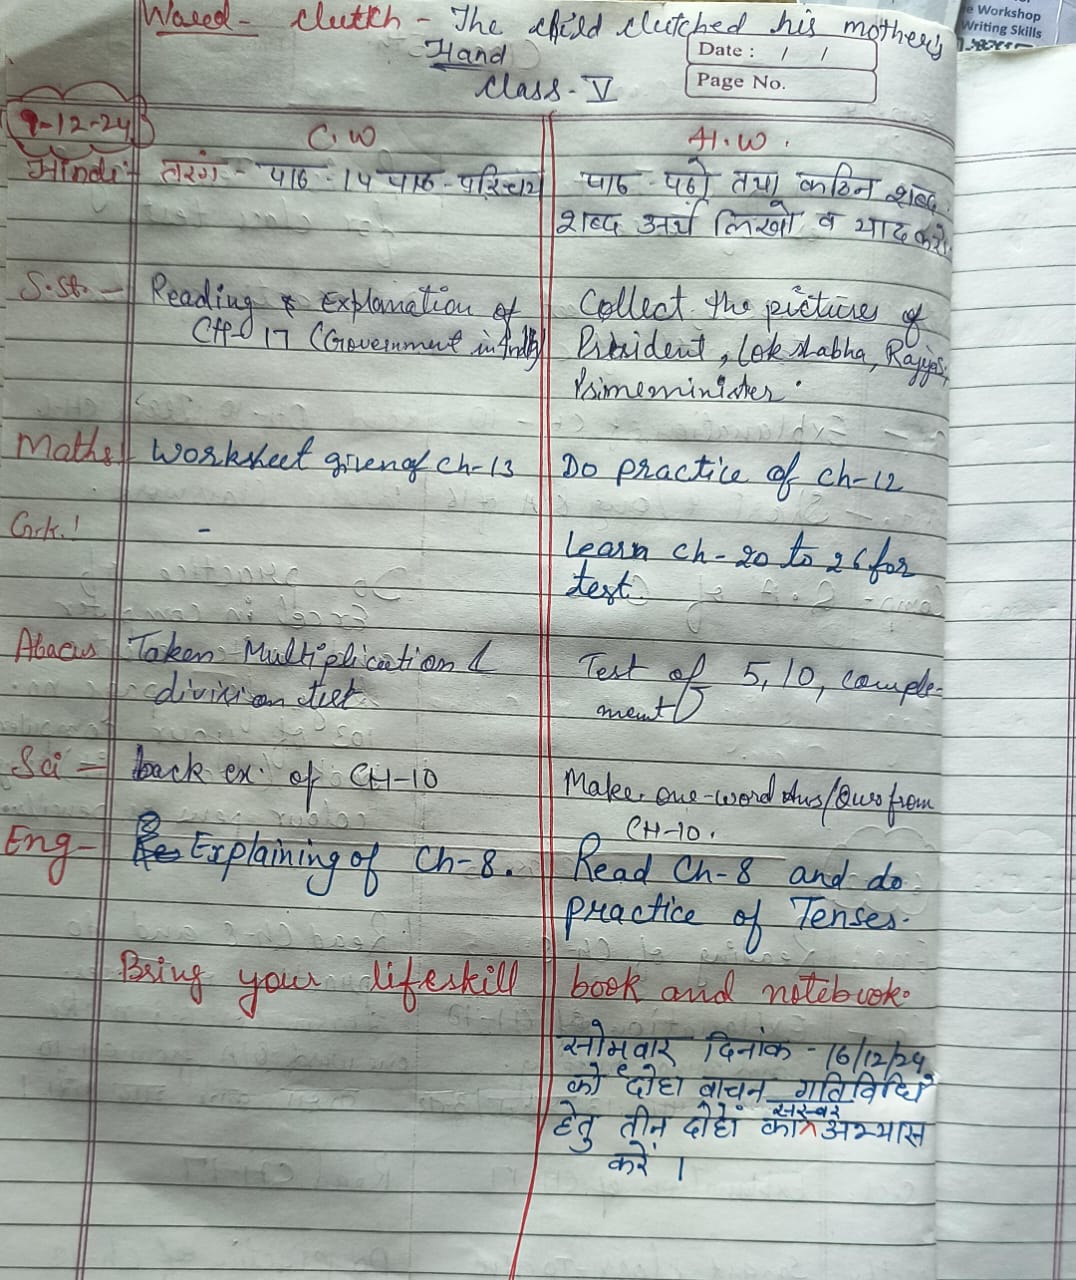 Word - Clutch - The child clutched his mother's
Hand
Class - V
Date : / /
Page No.
e Workshop
Writing Skills
9-12-24
C.W
H.W.
Hindi - तरंग - पाठ - 14 पाठ - परिचय
पाठ - पढ़ो तथा कठिन शब्द
शब्द अर्थ लिखो व याद करो.
S.St. - Reading & Explanation of
CH-17 (Government in India)
Collect the pictures of
President, Lok shabha, Rajya
Primeminister.
Maths Worksheet given of Ch-13
Do practice of Ch-12
G.k. -
Learn Ch-20 to 26 for
test.
Abacus Taken Multiplication &
division test
Test of 5, 10, comple-
ment
Sci - back ex. of CH-10
Make one-word Ans/Ques from
CH-10.
Eng - Explaining of Ch-8.
Read Ch-8 and do
practice of Tenses.
Bring your lifeskill book and notebook.
सोमवार दिनांक - 16/12/24
को दोहा वाचन गतिविधि
हेतु तीन दोहों का सस्वर अभ्यास
करें ।